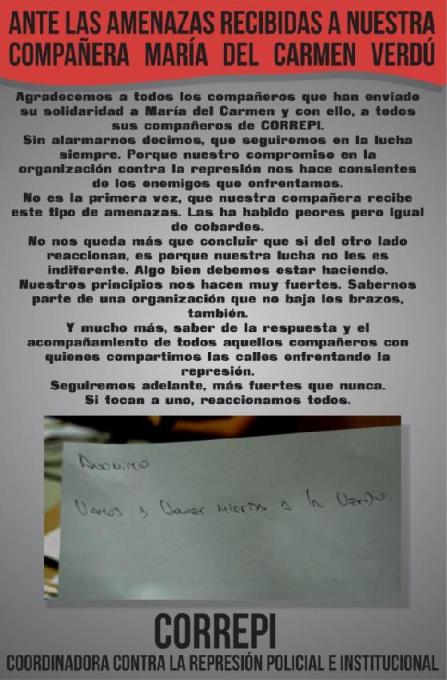 ANTE LAS AMENAZAS RECIBIDAS A NUESTRA
COMPAÑERA MARÍA DEL CARMEN VERDÚ
Agradecemos a todos los compañeros que han enviado
su solidaridad a María del Carmen y con ello, a todos
sus compañeros de CORREPI.
Sin alarmarnos decimos, que seguiremos en la lucha
siempre. Porque nuestro compromiso en la
organización contra la represión nos hace consientes
de los enemigos que enfrentamos.
No es la primera vez, que nuestra compañera recibe
este tipo de amenazas. Las ha habido peores pero igual
de cobardes.
No nos queda más que concluir que si del otro lado
reaccionan, es porque nuestra lucha no les es
indiferente. Algo bien debemos estar haciendo.
Nuestros principios nos hacen muy fuertes. Sabernos
parte de una organización que no baja los brazos,
también.
Y mucho más, saber de la respuesta y el
acompañamiento de todos aquellos compañeros con
quienes compartimos las calles enfrentando la
represión.
Seguiremos adelante, más fuertes que nunca.
Si tocan a uno, reaccionamos todos.
ANONIMO
VAMOS A HACER MIERDA A LA VERDU.
CORREPI
COORDINADORA CONTRA LA REPRESIÓN POLICIAL E INSTITUCIONAL